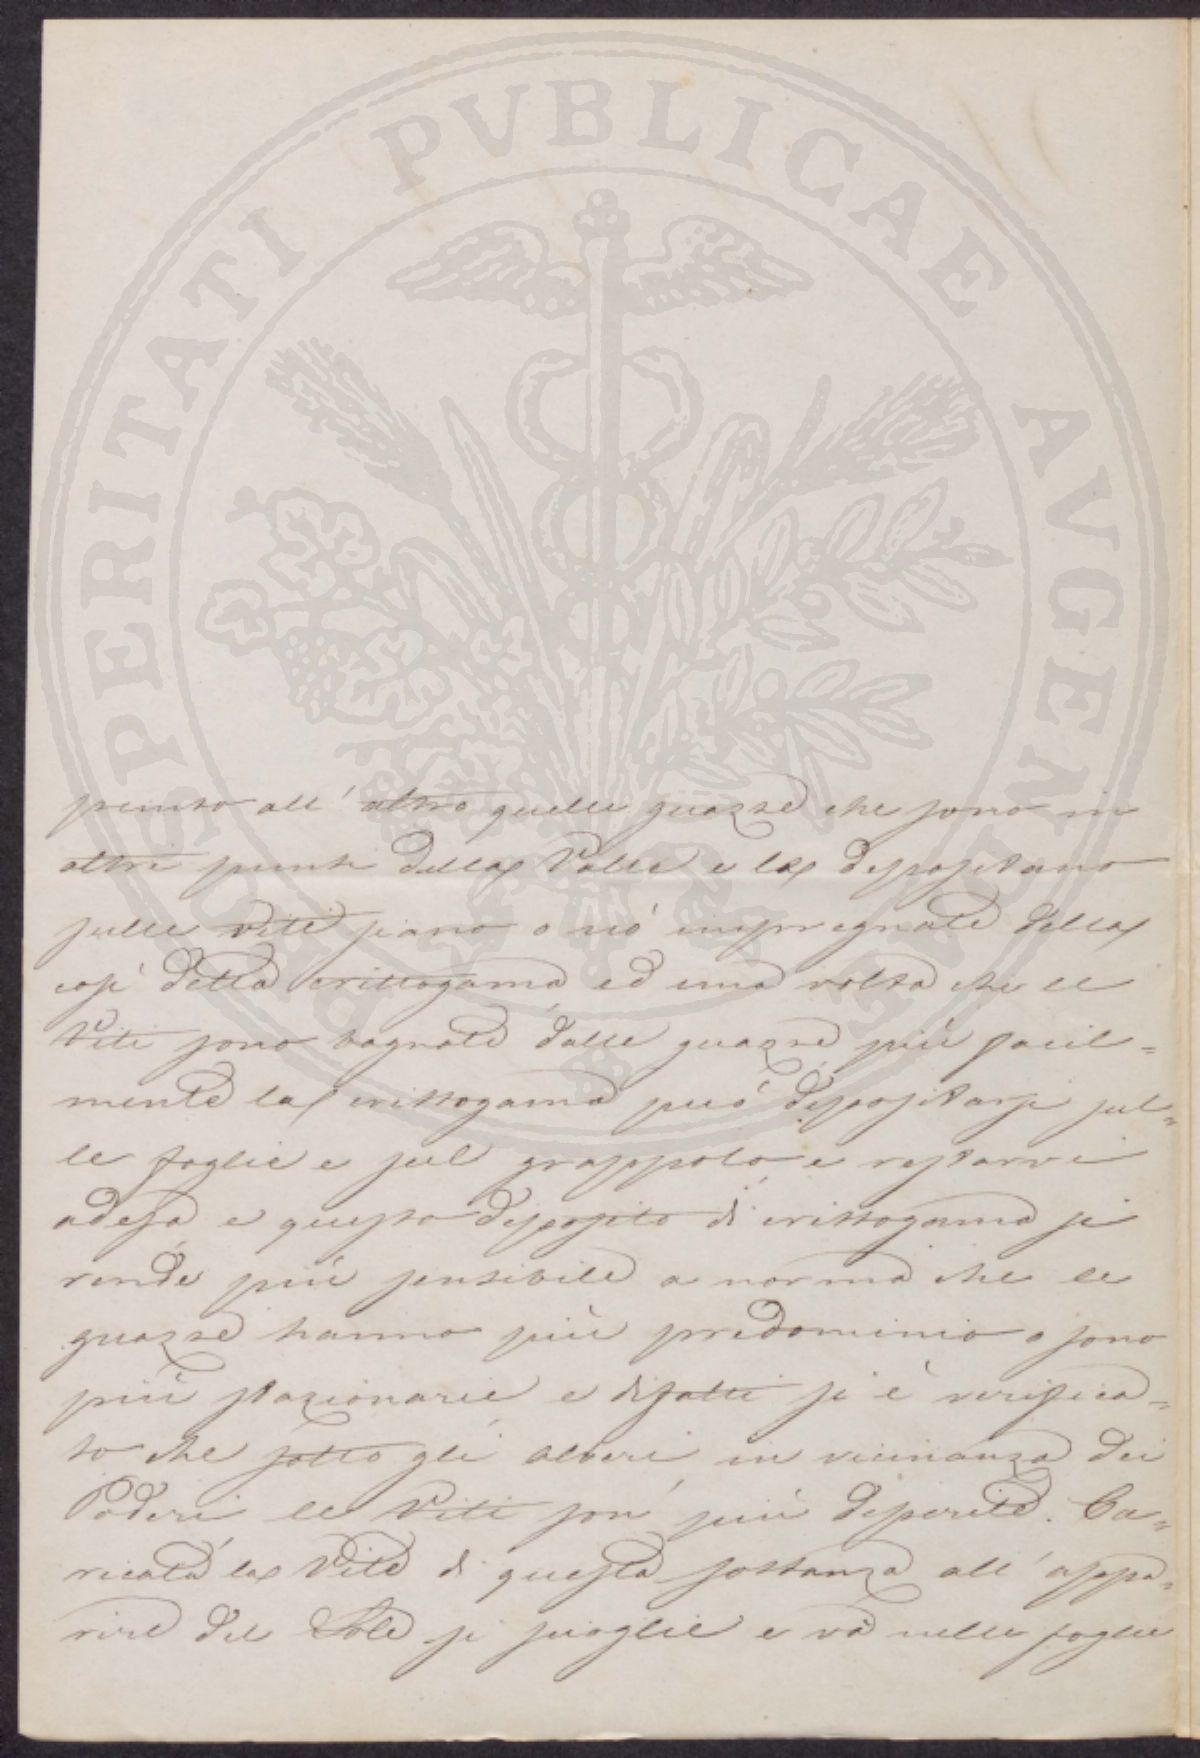 PROSPERITATI PVBLICAE AVGENDAE
punto all'altro quelle guazze che sono in
altri punti della Valle e la depositano
sulle viti siano o nò impregnate della
così detta crittogama ed una volta che le
Viti sono bagnate dalle guazze più facil=
mente la crittogama può depositarsi sul=
le foglie e sul grappolo e restarvi
adesa e questo deposito di crittogama si
rende più sensibile a norma che le
guazze hanno più predominio o sono
più stazionarie e difatti si è verifica=
to che sotto gli alberi in vicinanza dei
Poderi le Viti son più deperite. Ca=
ricata la Vite di questa sostanza all'appa=
rire del Sole si scioglie e và nelle foglie